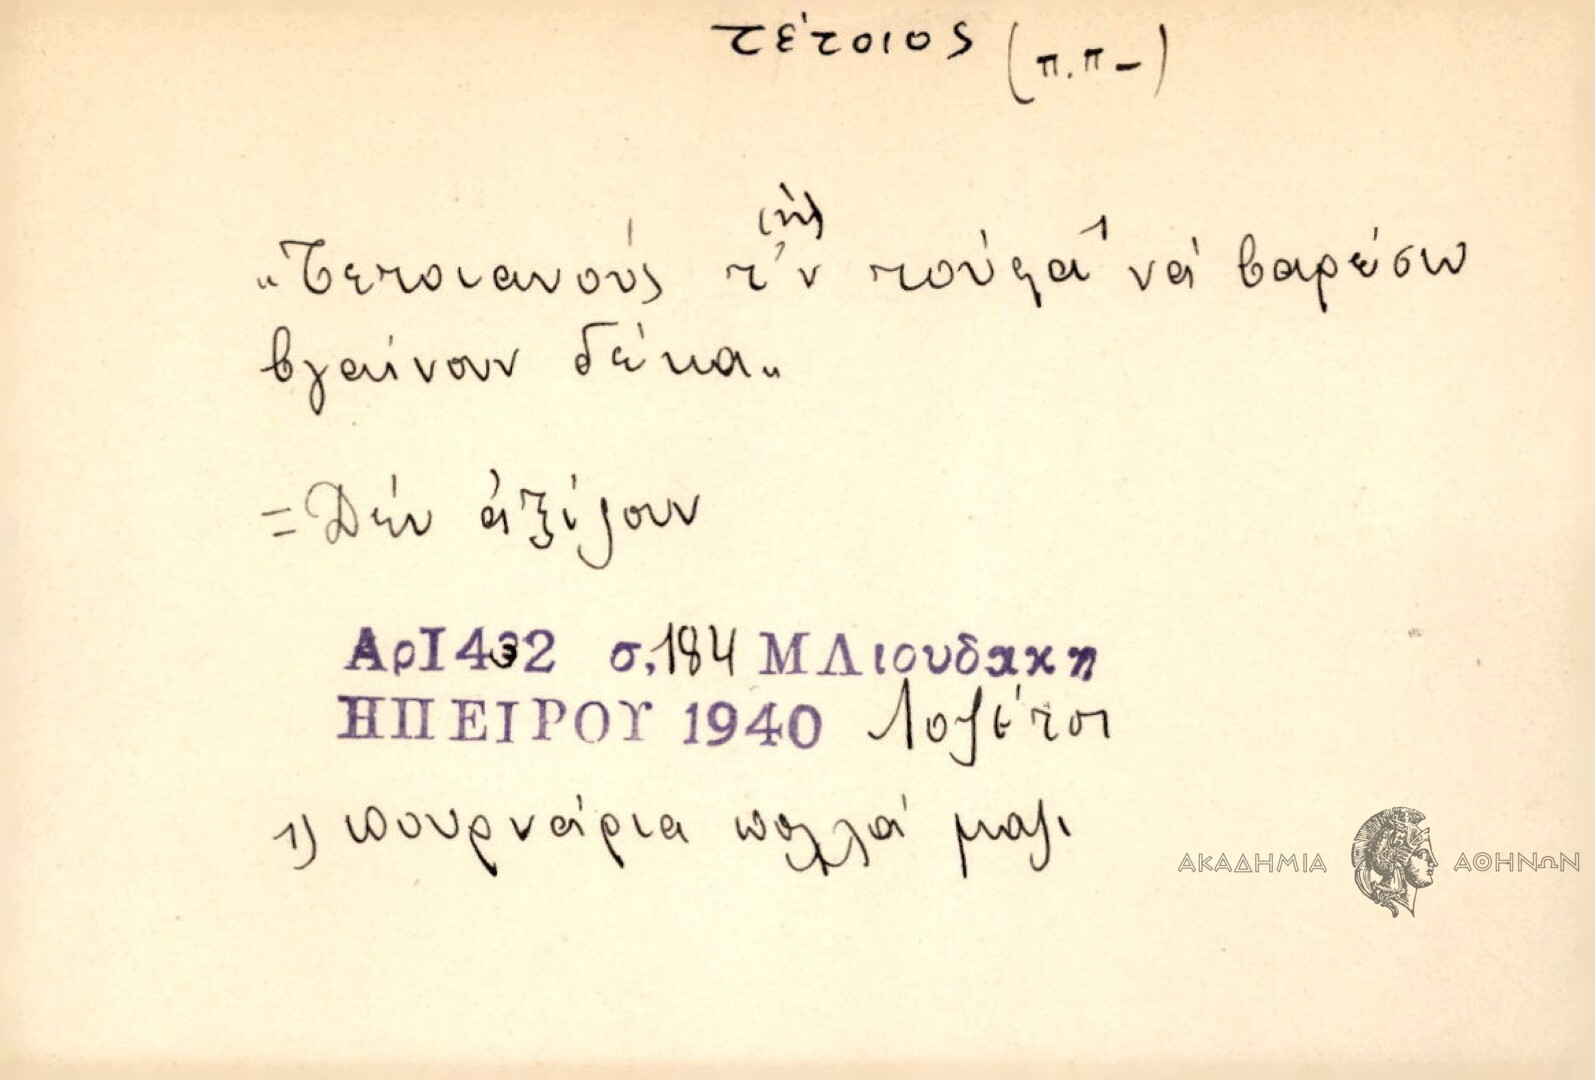 τέτοιος (π.π–)
(ὴ)
"Τετοιανούς τ'ν τούφα¹ νά βαρέσω
βγαίνουν δέκα"
= Δέν ἀξίζουν
Αρ1432 σ,184 ΜΛιουδακη
ΗΠΕΙΡΟΥ 1940 Λοζέτσι
1) πουρνάρια πολλά μαζι
ΑΚΑΔΗΜΙΑ ΑΘΗΝΩΝ